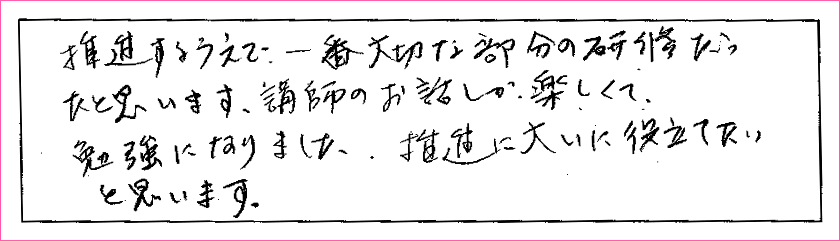 推進するうえで、一番大切な部分の研修だっ
たと思います。講師のお話しが楽しくて、
勉強になりました。推進に大いに役立てたい
と思います。